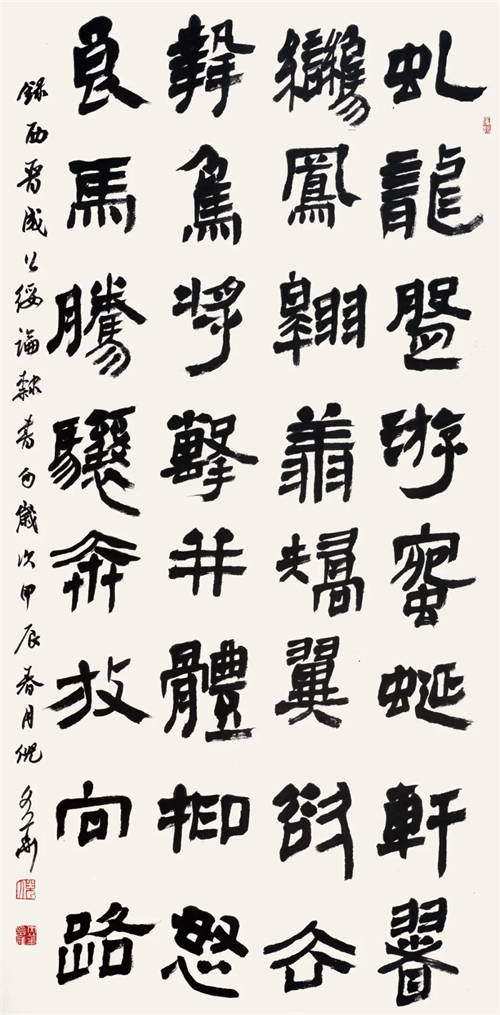 虬龍盤游蜿蜒軒翥
鸞鳳翱翔矯翼欲去
摯鳥將擊并體抑怒
良馬騰驤奔放向路
錄西晉成公綏論隸書句歲次甲辰春月倪文華